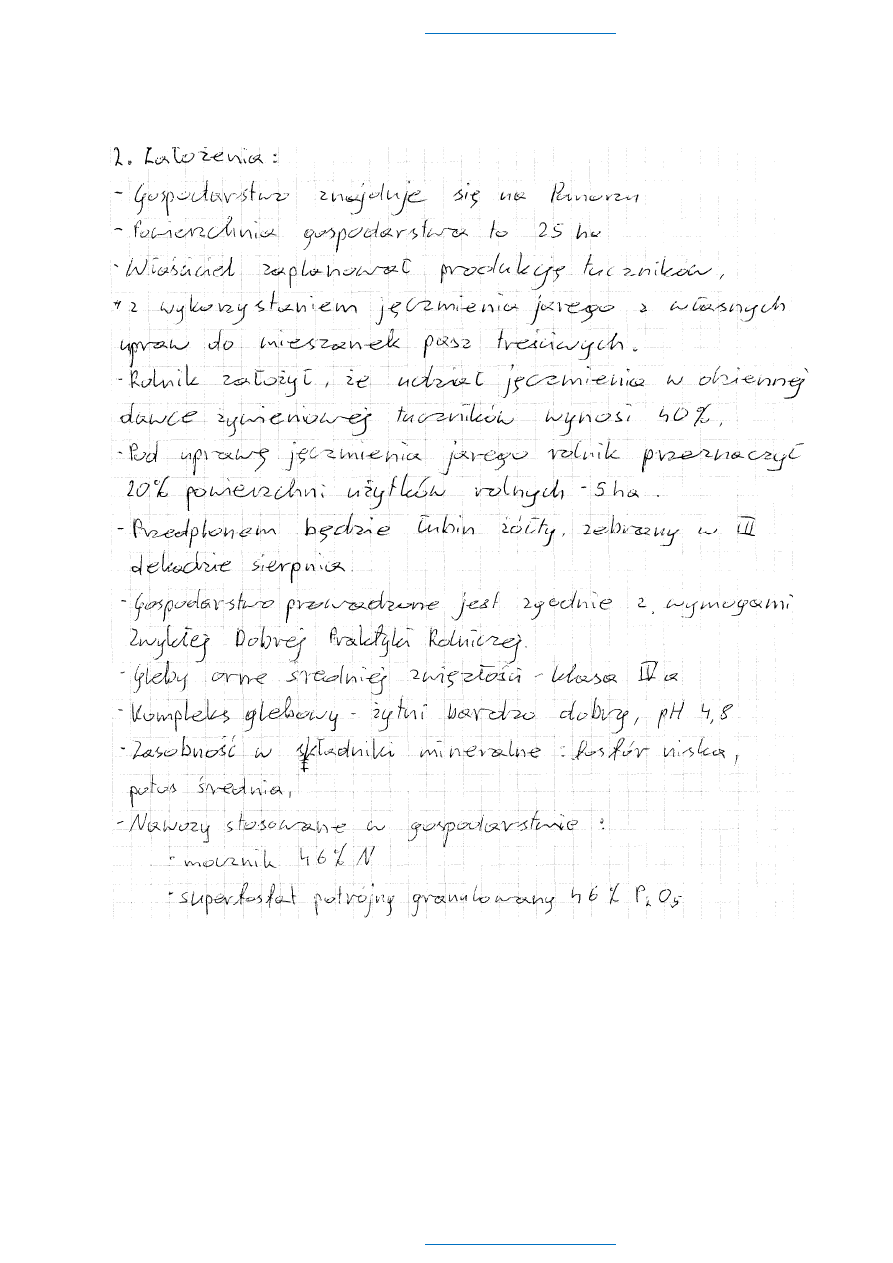 2. Założenia:
- Gospodarstwo znajduje się na Pomorzu
- Powierzchnia gospodarstwa to 25 ha
- Właściciel zaplanował produkcję tuczników,
z wykorzystaniem jęczmienia jarego z własnych
upraw do mieszanek pasz treściwych.
- Rolnik założył, że udział jęczmienia w dziennej
dawce żywieniowej tuczników wynosi 40%.
- Pod uprawę jęczmienia jarego rolnik przeznaczył
20% powierzchni użytków rolnych - 5ha.
- Przedplonem będzie łubin żółty, zebrany w III
dekadzie sierpnia.
- Gospodarstwo prowadzone jest zgodnie z wymogami
Zwykłej Dobrej Praktyki Rolniczej.
- Gleby orne średniej zwięzłości - klasa IV a
- Kompleks glebowy - żytni bardzo dobry, pH 4,8
- Zasobność w składniki mineralne: fosfór niska,
potas średnia,
- Nawozy stosowane w gospodarstwie:
- mocznik 46% N
- superfosfat potrójny granulowany 46% P₂O₅